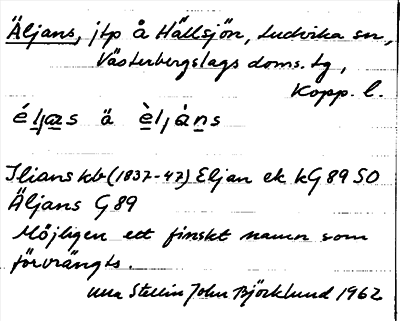 Äljans, jtp å Hällsjön, Ludvika sn,
Västerbergslags doms. tg,
Kopp. l.
éljas ä èljàns
Ilians kb (1837-47) Eljan ek kG 89 SO
Äljans G 89
Möjligen ett finskt namn som
förvrängts.
Stellin John Björklund 1962